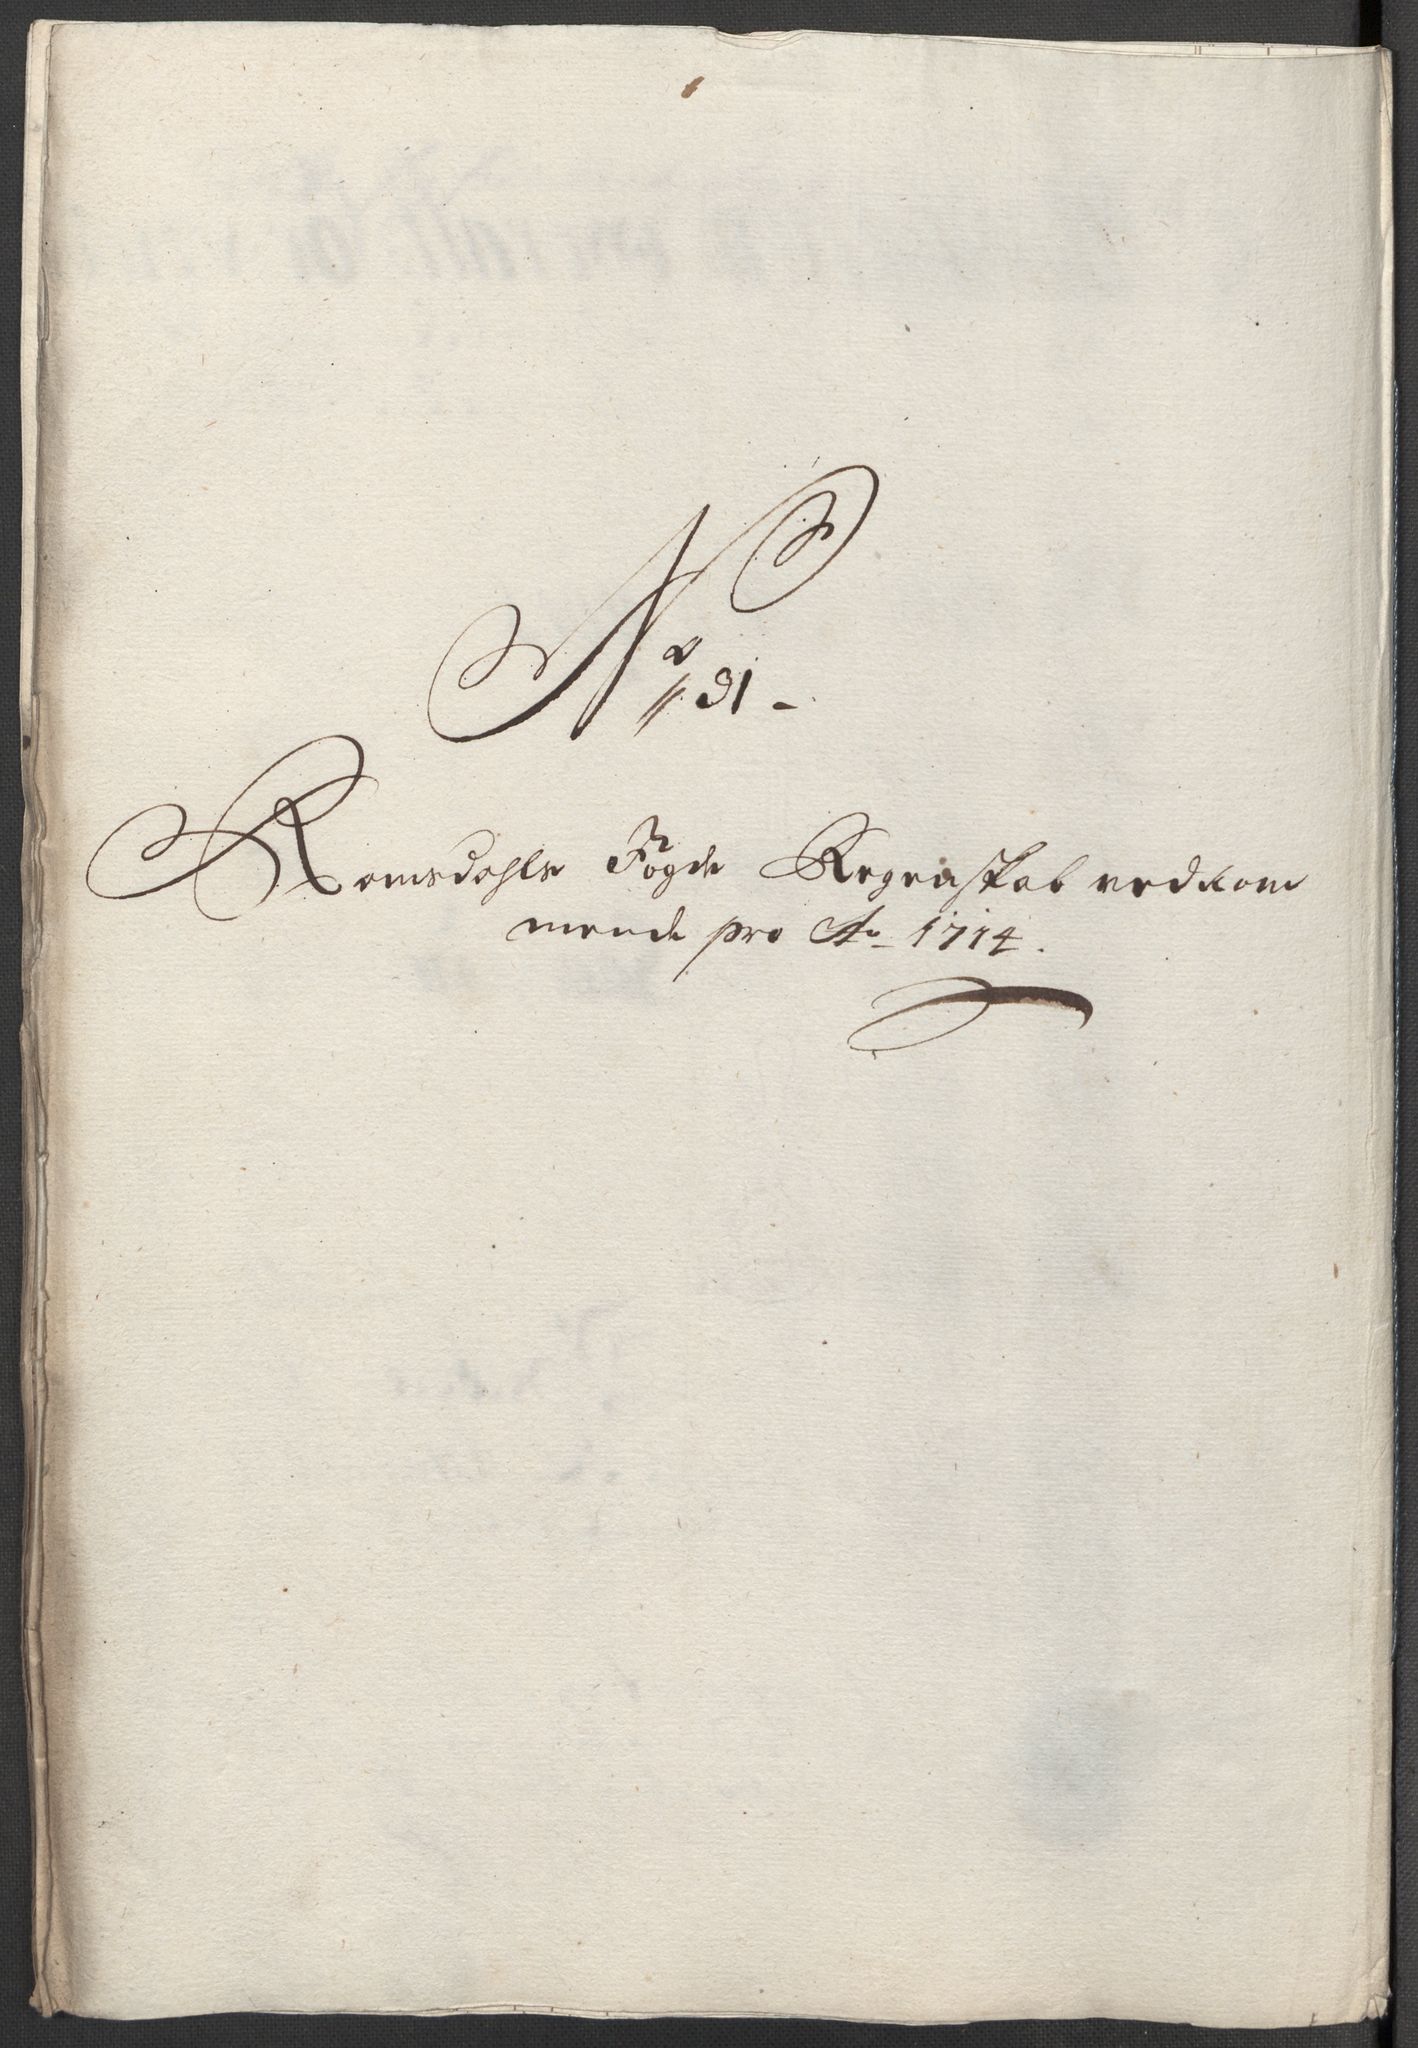 No 31 -
Romsdahls Fögde Regenskab vedkom
mende pro Ao 1714.